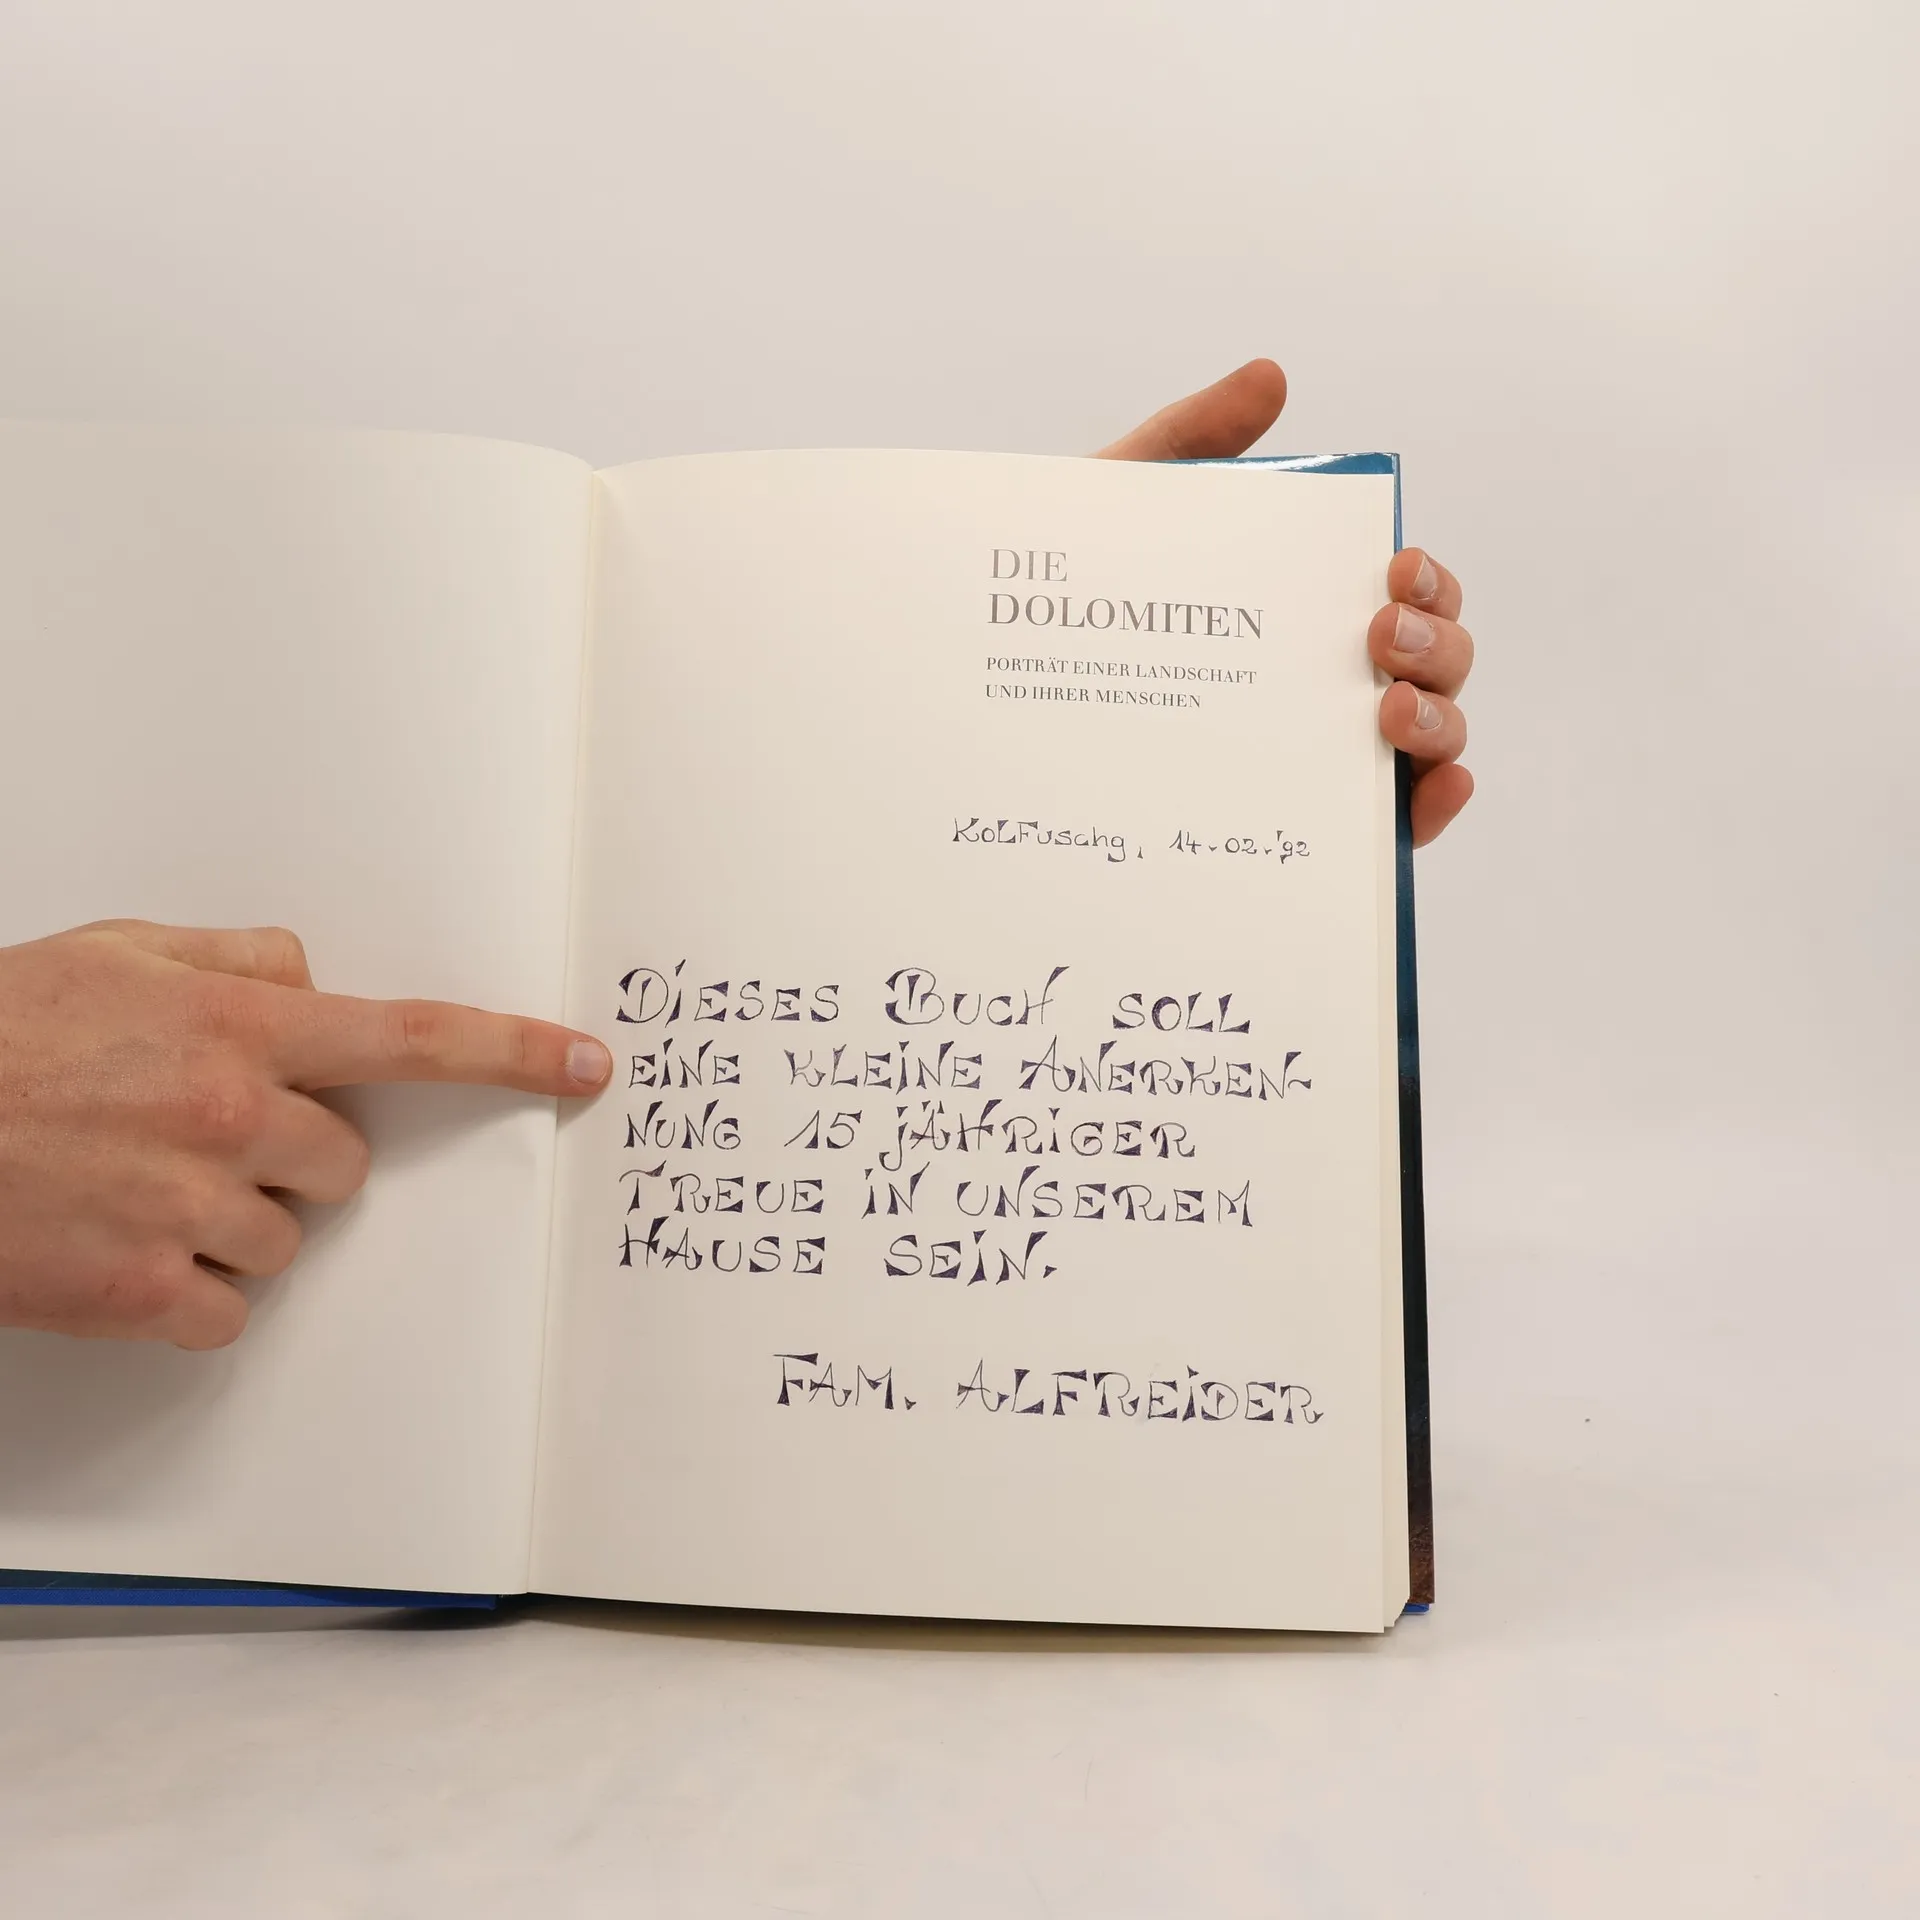 DIE
DOLOMITEN
PORTRÄT EINER LANDSCHAFT
UND IHRER MENSCHEN
Kolfuschg, 14.02.'92
DiESES BUCH SOLL
EiNE KLEiNE ANERKEN-
NUNG 15 jÄHRiGER
TREUE iN UNSEREM
HAUSE SEiN.
FAM. ALFREiDER